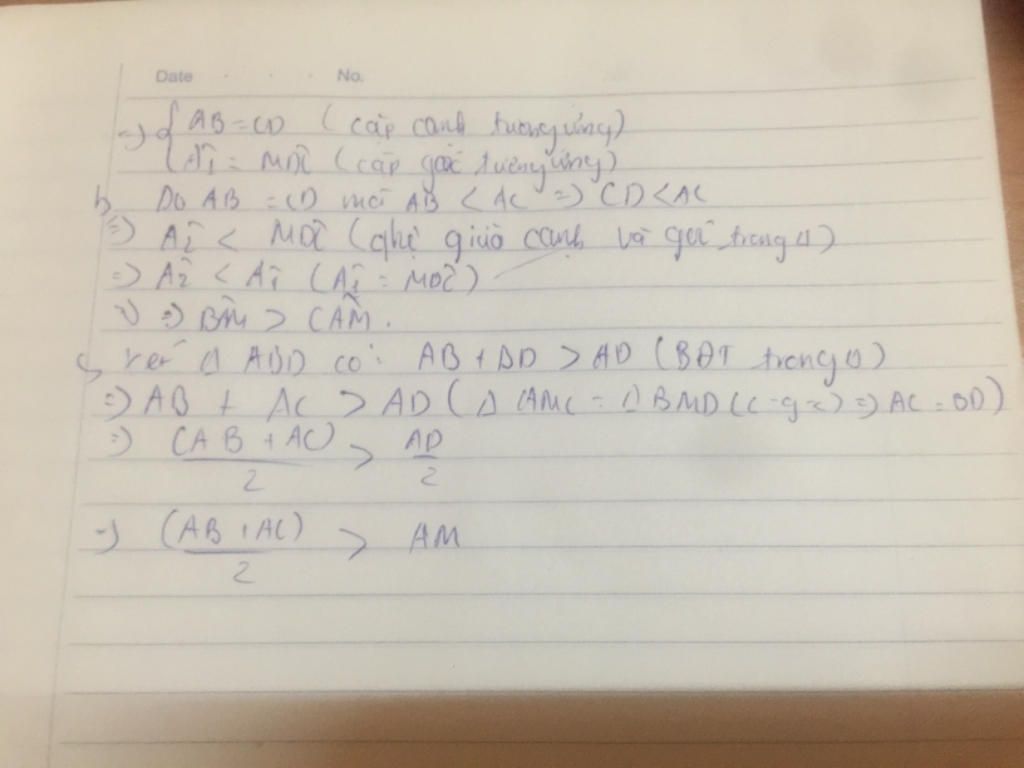 Date . . . No.
=> { AB = CD ( cặp cạnh tương ứng)
Â1 = MDC ( cặp góc tương ứng)
b, Do AB = CD mà AB < AC => CD < AC
=> Â2 < MDC ( giữa cạnh và góc trong Δ)
=> Â2 < Â1 ( Â1 = MDC)
=> BAM > CAM.
c, Xét Δ ABD có: AB + BD > AD (BĐT trong Δ)
=> AB + AC > AD ( Δ AMC = Δ BMD (c-g-c) => AC = BD)
=> (AB + AC) / 2 > AD / 2
=> (AB + AC) / 2 > AM